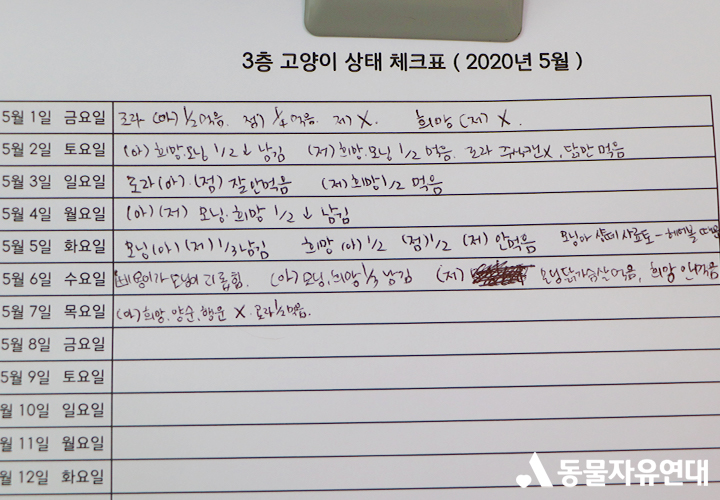 3층 고양이 상태 체크표 ( 2020년 5월 )
5월 1일 금요일 로라 (아) 1/2먹음. 점) 1/4먹음. 저) X. 희망 (저) X.
5월 2일 토요일 (아) 희망.모닝 1/2 ↓ 남김 (저) 희망.모닝 1/2 먹음. 로라 주식캔X, 닭만 먹음
5월 3일 일요일 로라(아)·(점) 잘안먹음 (저) 희망1/2 먹음
5월 4일 월요일 (아) (저) 모닝·희망 1/2 ↓ 남김
5월 5일 화요일 모닝(아) (저) 1/3남김 희망 (아) 1/2 (점)1/2 (저) 안먹음 모닝아 사료토-헤어볼
5월 6일 수요일 모닝이 괴롭힘. (아) 모닝,희망 1/3 남김 (저) 모닝닭가슴살먹음, 희망 안먹음
5월 7일 목요일 (아)희망.양순.행운 X. 로라1/2먹음.
5월 8일 금요일
5월 9일 토요일
월 10일 일요일
월 11일 월요일
월 12일 화요일
동물자유연대